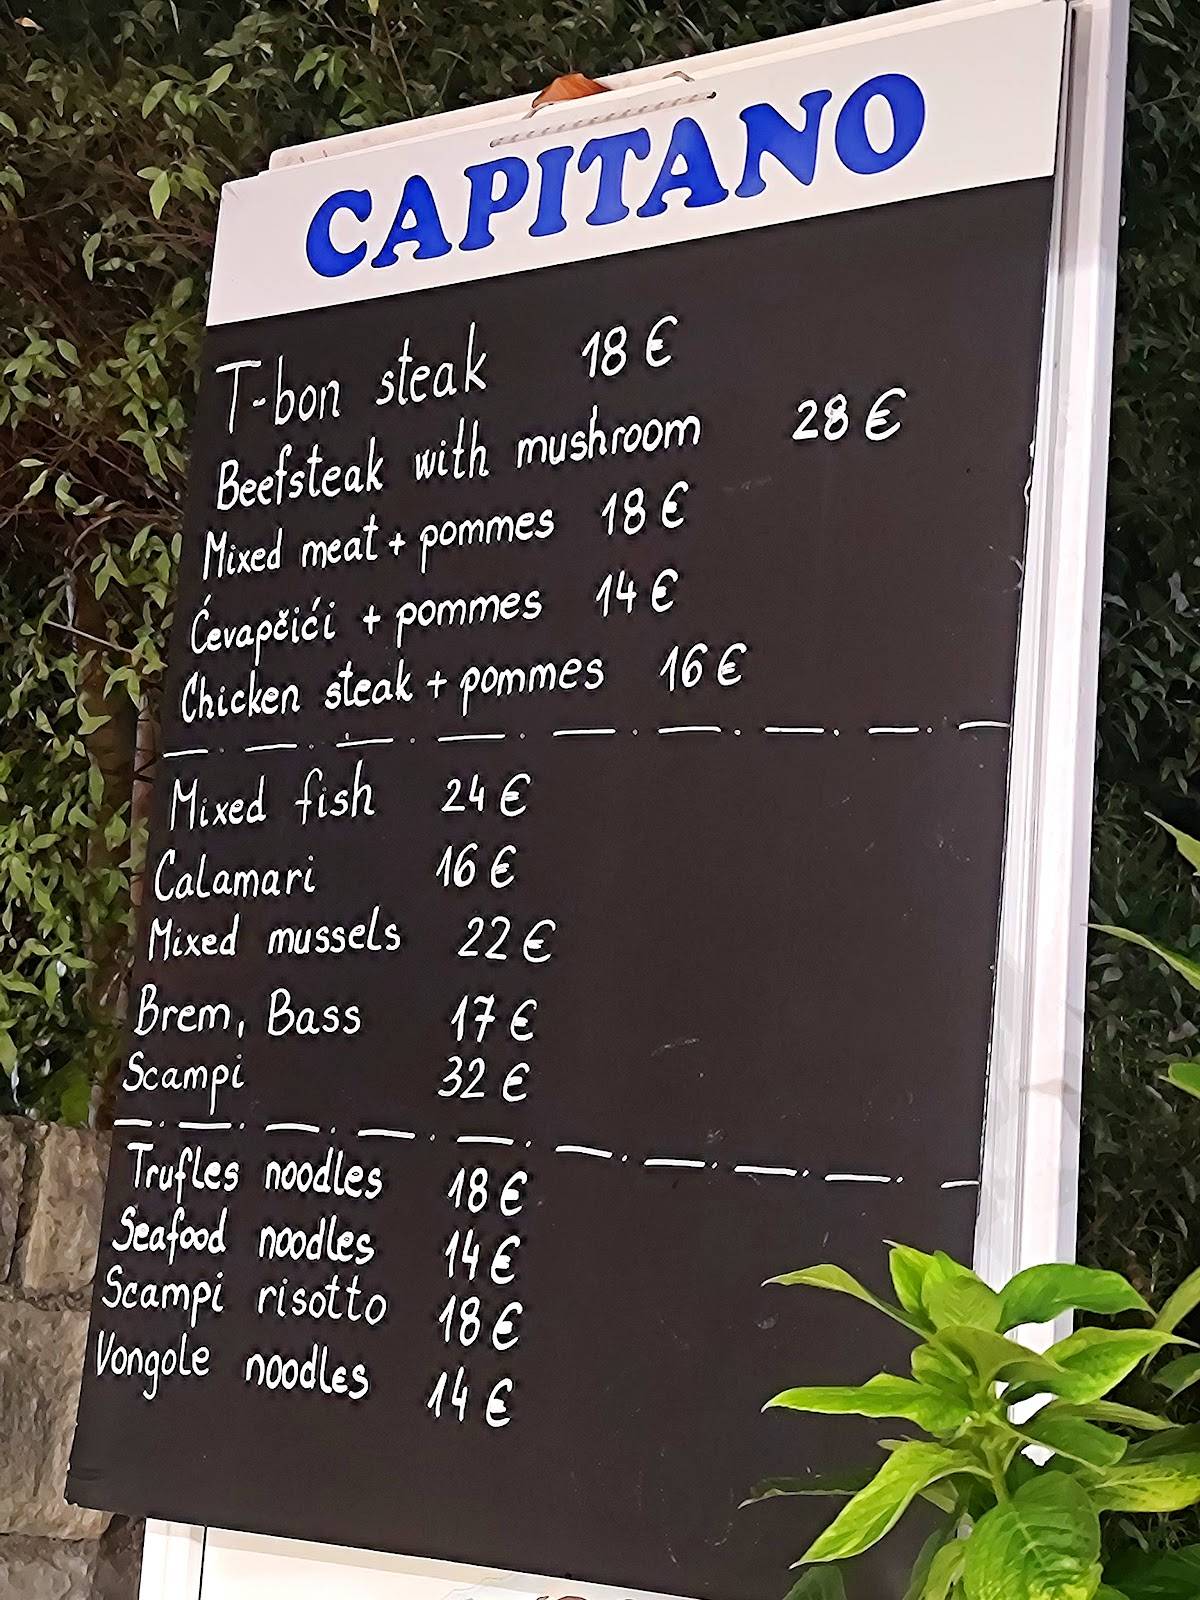 CAPITANO
T-bon steak 18 €
Beefsteak with mushroom 28 €
Mixed meat + pommes 18 €
Ćevapčići + pommes 14 €
Chicken steak + pommes 16 €
Mixed fish 24 €
Calamari 16 €
Mixed mussels 22 €
Brem, Bass 17 €
Scampi 32 €
Trufles noodles 18 €
Seafood noodles 14 €
Scampi risotto 18 €
Vongole noodles 14 €